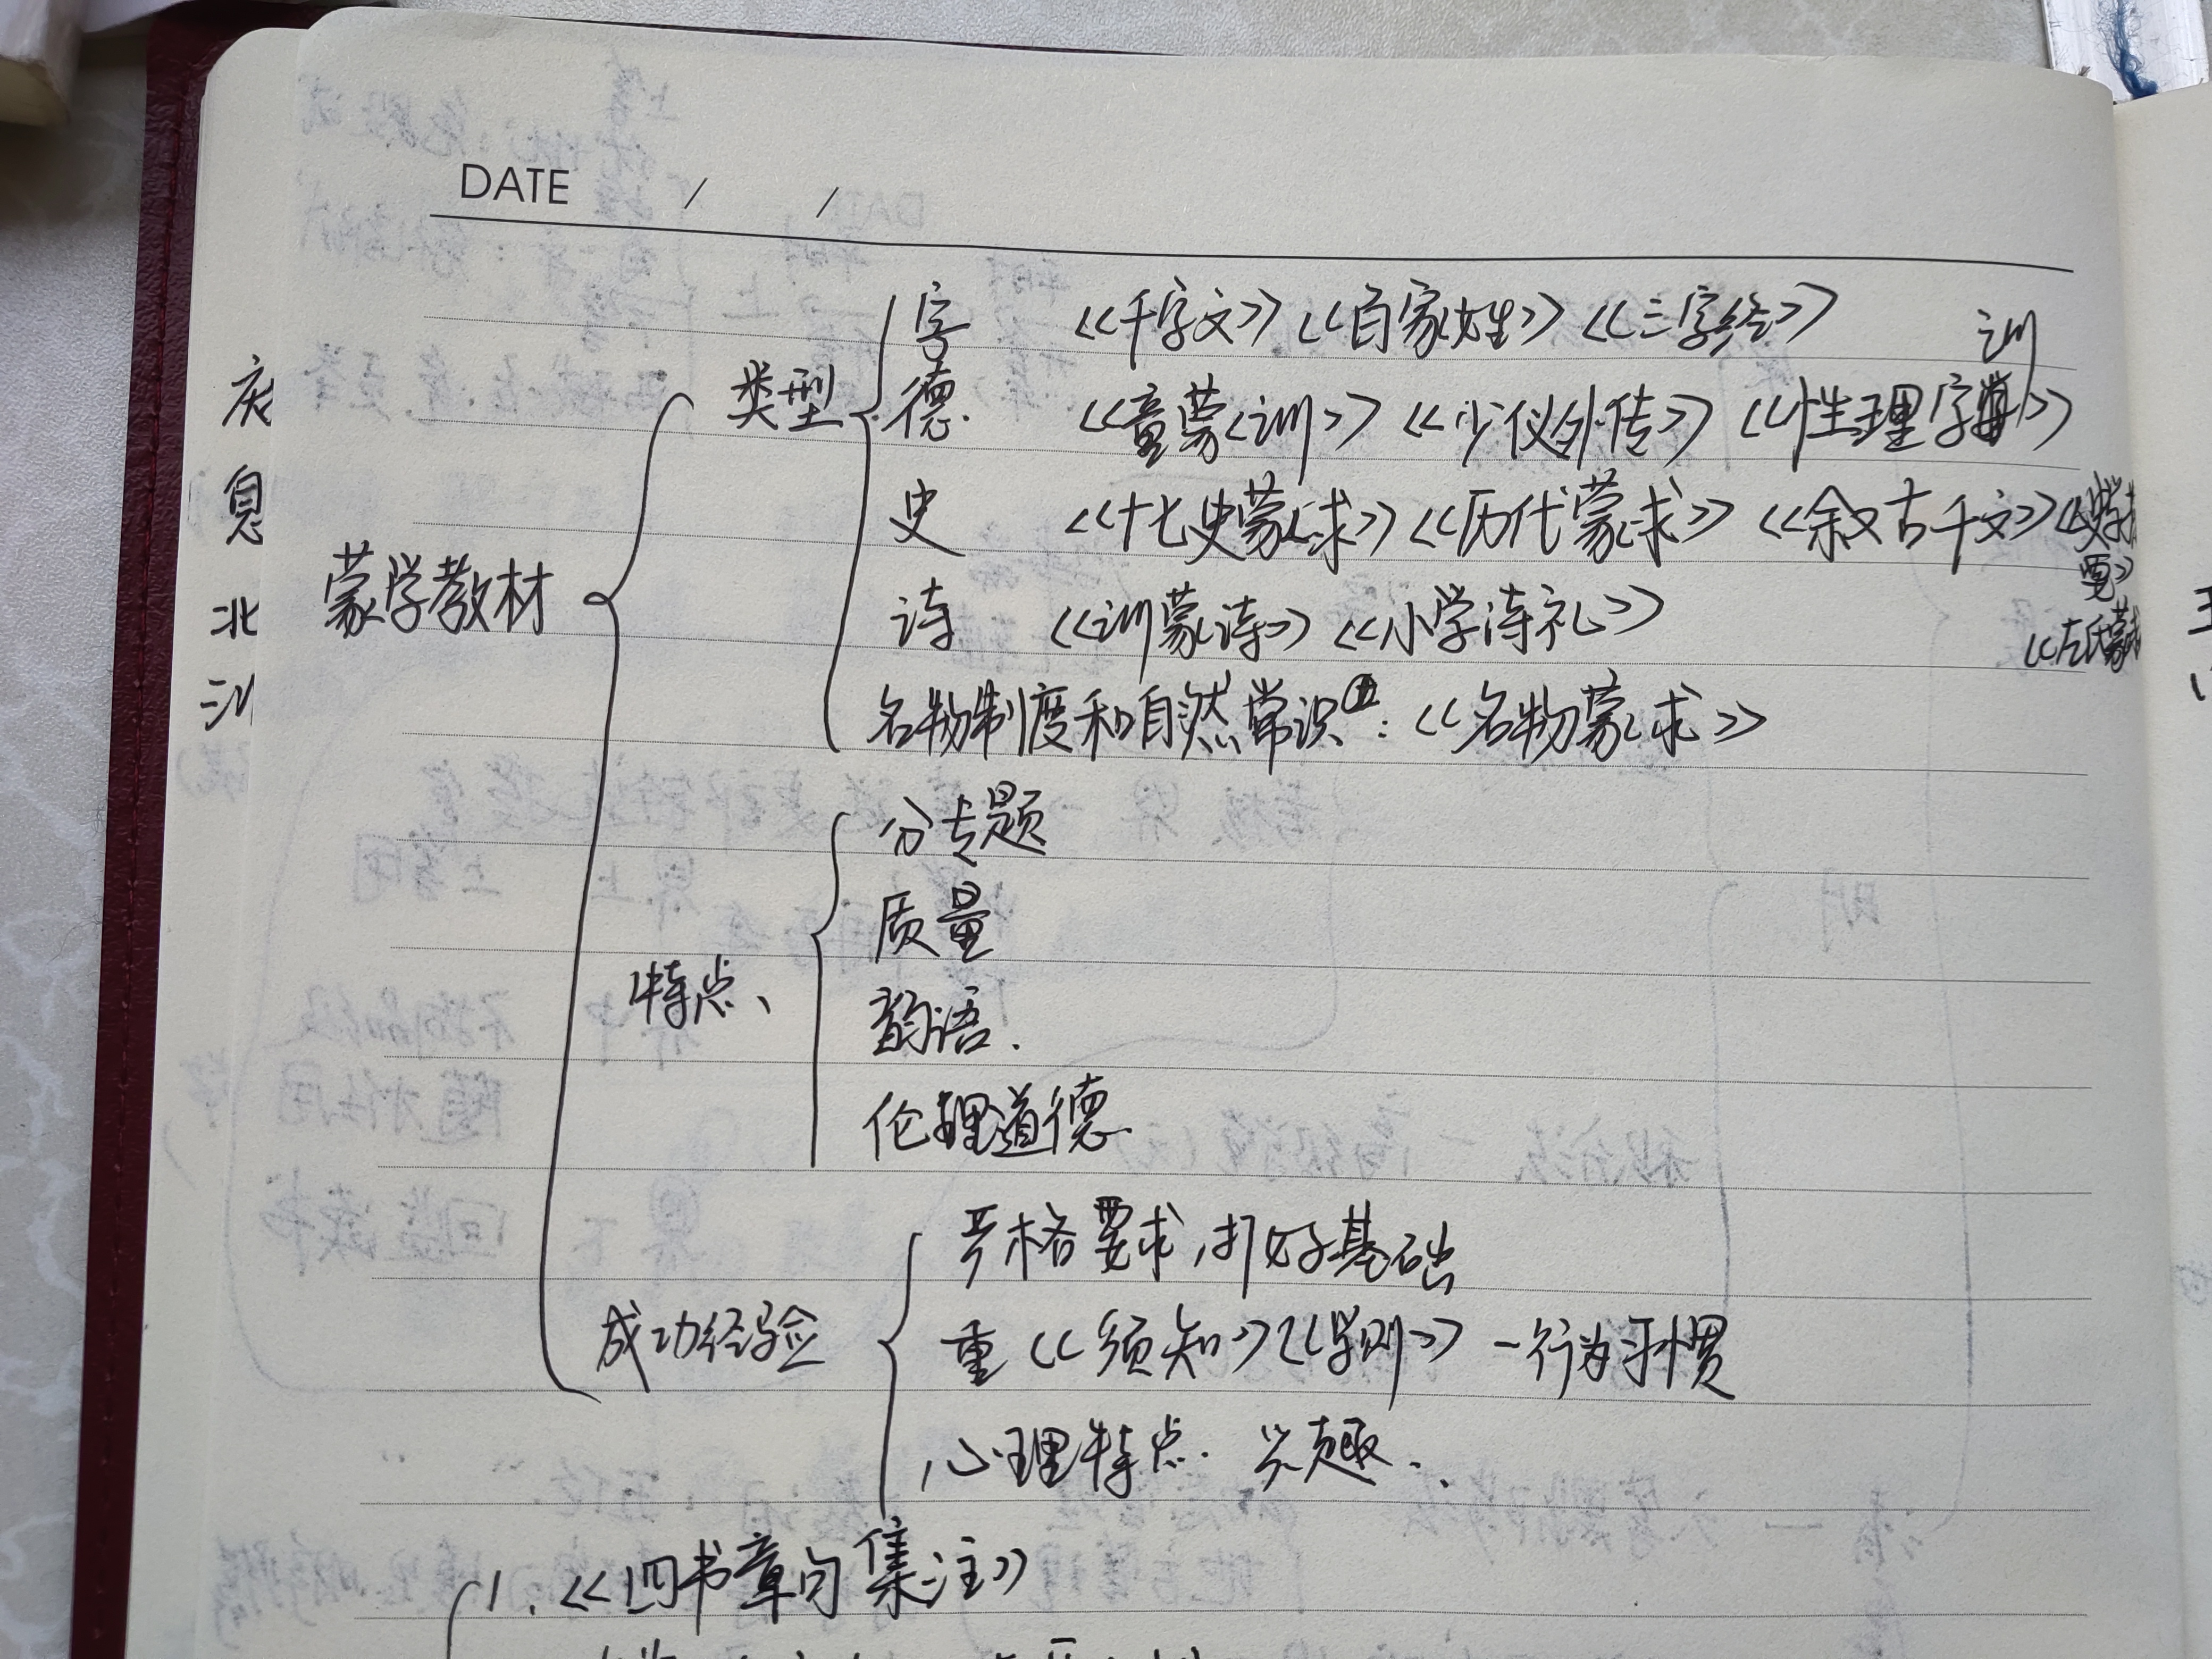 DATE / /
字 《千字文》《百家姓》《三字经》
训
类型 德. 《童蒙训》《少仪外传》《性理字训》
史 《十七史蒙求》《历代蒙求》《叙古千文》《史学提
要》
蒙学教材
诗 《训蒙诗》《小学诗礼》
《左氏蒙求
名物制度和自然常识: 《名物蒙求》
分专题
质量
特点、
韵语.
伦理道德.
严格要求,打好基础
成功经验
重《须知》《学则》-行为习惯
心理特点. 兴趣.
1.《四书章句集注》
息
北